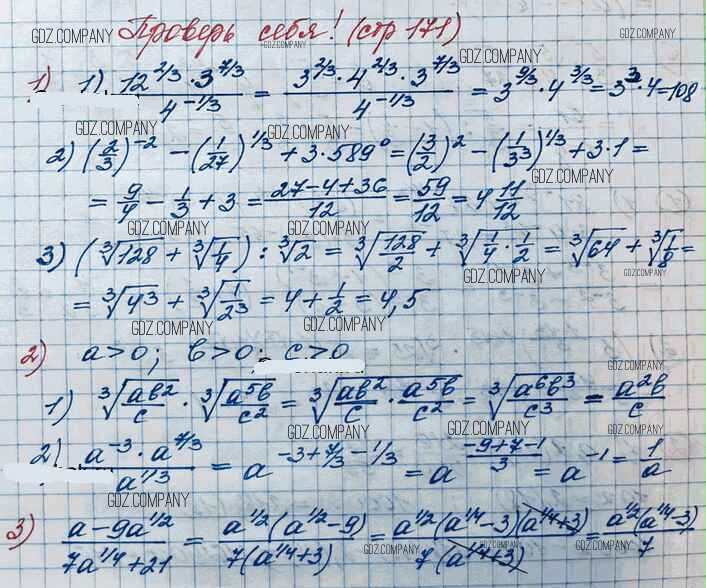 GDZ.COMPANY Проверь себя! (стр 171) GDZ.COMPANY
GDZ.COMPANY GDZ.COMPANY
1) 1) (12^(2/3) · 3^(7/3))/(4^(-1/3)) = (3^(2/3) · 4^(2/3) · 3^(7/3))/(4^(-1/3)) = 3^(9/3) · 4^(3/3) = 3^3 · 4 = 108
GDZ.COMPANY GDZ.COMPANY
2) (2/3)^(-2) - (1/27)^(1/3) + 3 · 589^0 = (3/2)^2 - (1/3^3)^(1/3) + 3 · 1 =
GDZ.COMPANY
= 9/4 - 1/3 + 3 = (27-4+36)/12 = 59/12 = 4 11/12
GDZ.COMPANY GDZ.COMPANY
3) (∛128 + ∛(1/4)) : ∛2 = ∛(128/2) + ∛(1/4 · 1/2) = ∛64 + ∛(1/8) =
GDZ.COMPANY GDZ.COMPANY
= ∛(4^3) + ∛(1/2^3) = 4 + 1/2 = 4,5
GDZ.COMPANY GDZ.COMPANY
2) a>0; b>0; c>0
GDZ.COMPANY
1) ∛(ab^2/c) · ∛(a^5b/c^2) = ∛(ab^2/c · a^5b/c^2) = ∛(a^6b^3/c^3) = a^2b/c
GDZ.COMPANY GDZ.COMPANY GDZ.COMPANY
2) (a^(-3) · a^(7/3))/(a^(1/3)) = a^(-3+7/3-1/3) = a^((-9+7-1)/3) = a^(-1) = 1/a
GDZ.COMPANY GDZ.COMPANY
3) (a-9a^(1/2))/(7a^(1/4)+21) = (a^(1/2)(a^(1/2)-9))/(7(a^(1/4)+3)) = (a^(1/2)(a^(1/4)-3)(a^(1/4)+3))/(7(a^(1/4)+3)) = (a^(1/2)(a^(1/4)-3))/7
GDZ.COMPANY GDZ.COMPANY GDZ.COMPANY